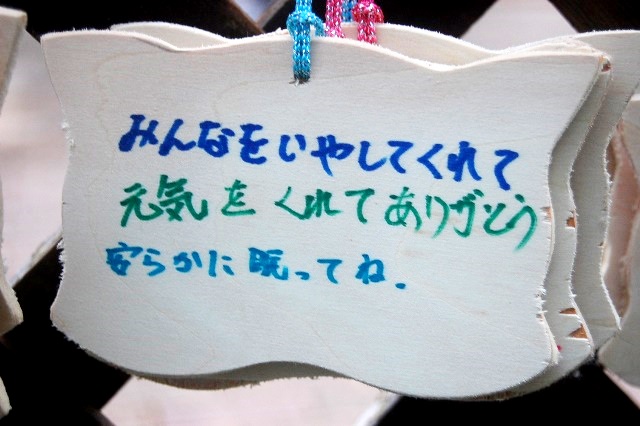 みんなをいやしてくれて
元気をくれてありがとう
安らかに眠ってね.